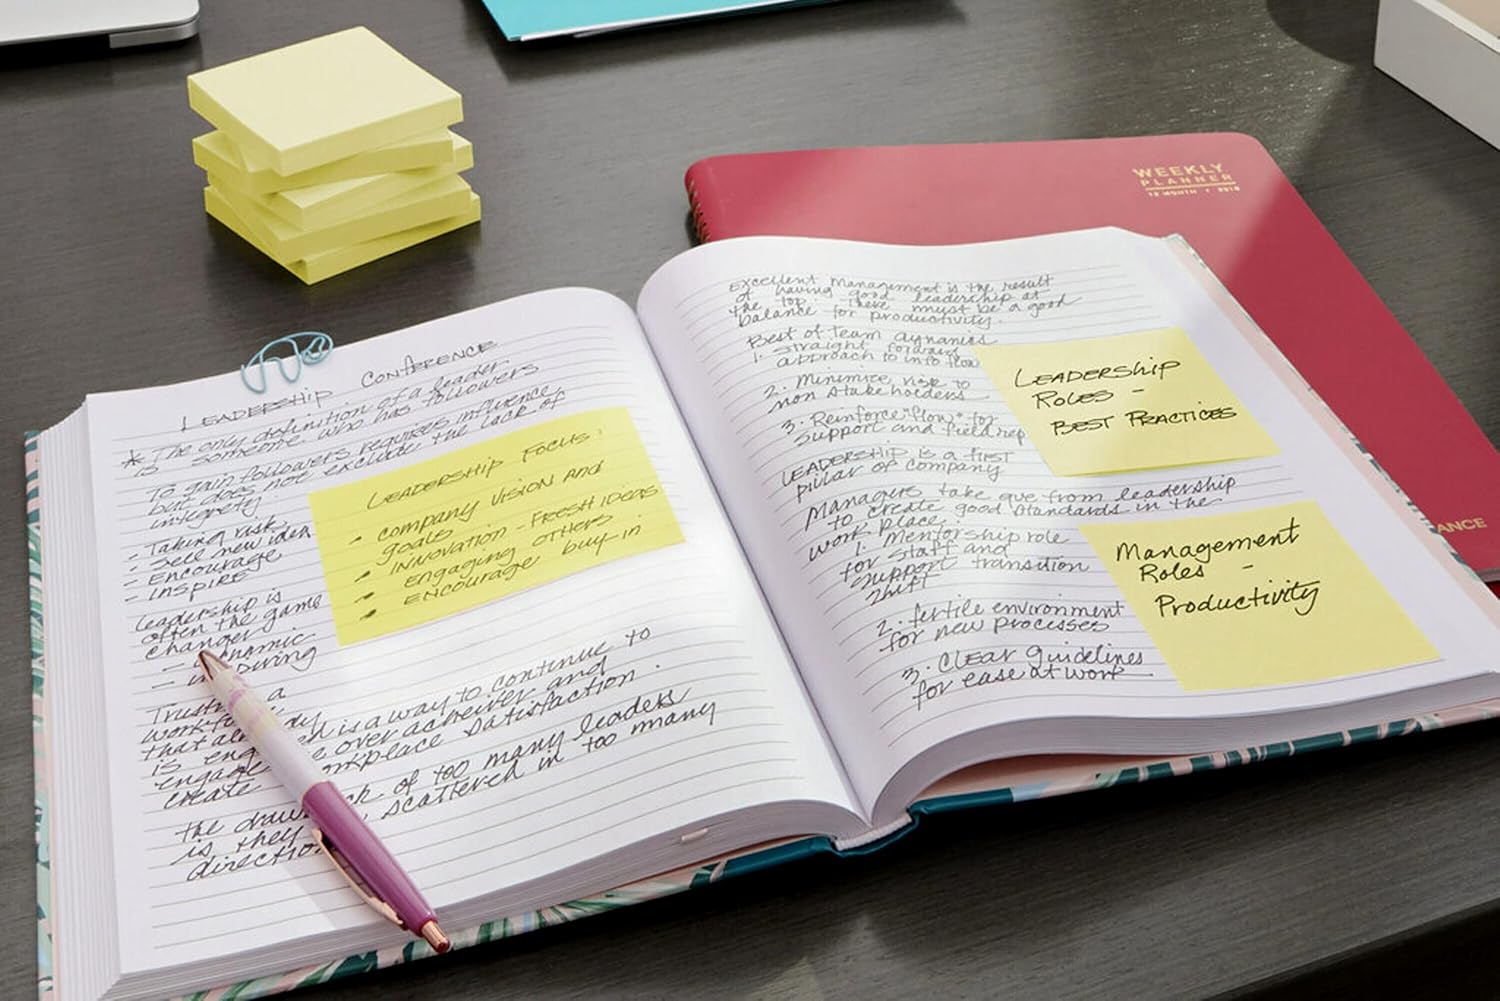 LEADERSHIP CONFERENCE
* The only definition of a leader
is someone who has followers
To gain followers requires influence
but does not exclude the lack of
integrety
- Taking risk
- Sell new idea
- Encourage
- INSPIRE
Leadership is
often the game
changer
- dynamic
LEADERSHIP FOCUS:
• COMPANY VISION AND
goals
• INNOVATION - FRESH IDEAS
• ENGAGING OTHERS
• ENCOURAGE buy-in
Trust
is a way to continue to
over acheiver and
workplace satisfaction.
create
the of too many leaders
is they scattered in too many
Excellent Management is the result
of having good leadership at
the top. There must be a good
balance for productivity.
Best of team dynamics
1. Straight forward
approach to info flow
2. Minimize risk to
non stakeholders
3. Reinforce "flow" for
support and field rep
LEADERSHIP IS a FIRST
pillar of company
Managers take que from leadership
to create good standards in the
work place.
1. Mentorship role
for staff and
support transition
shift
2. fertile environment
for new processes
3. Clear guidelines
for ease at work
LEADERSHIP
ROLES -
BEST PRACTICES
Management
Roles -
Productivity
WEEKLY
PLANNER
12 MONTH • 2019
ANCE